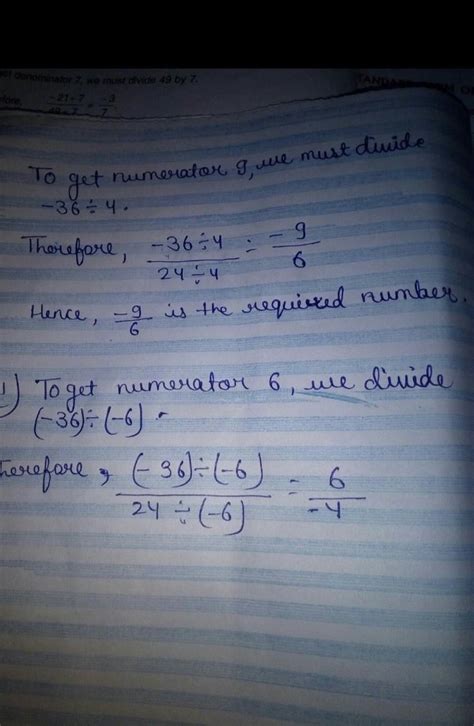 denominator 7, we must divide 49 by 7.
-21÷7 = -3
49÷7 7
To get numerator 9, we must divide
-36÷4.
Therefore, -36÷4 = -9
24÷4 6
Hence, -9/6 is the required number.
) To get numerator 6, we divide
(-36)÷(-6).
Therefore, (-36)÷(-6) = 6
24÷(-6) -4